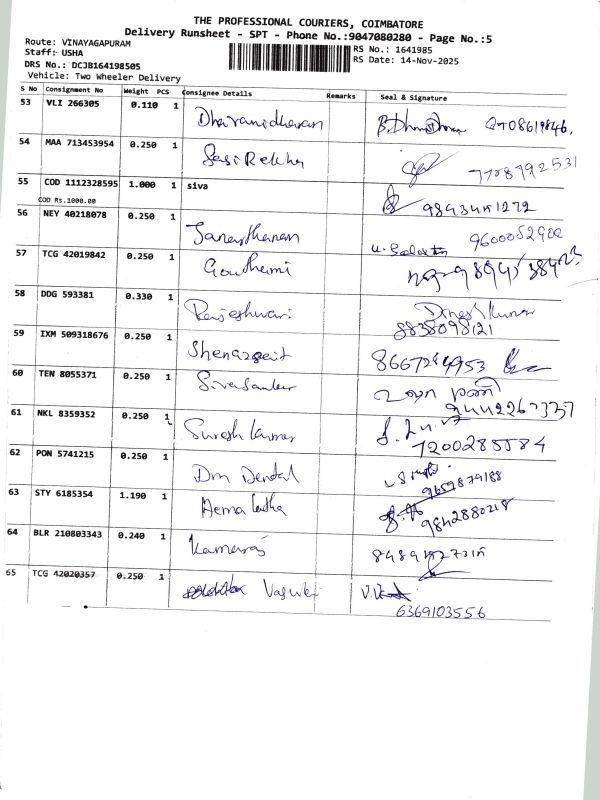 THE PROFESSIONAL COURIERS, COIMBATORE
Delivery Runsheet - SPT - Phone No.:9047080280 - Page No.:5
Route: VINAYAGAPURAM
Staff: USHA
DRS No.: DCJB164198505
Vehicle: Two Wheeler Delivery
RS No.: 1641985
RS Date: 14-Nov-2025
S No Consignment No Weight PCS Consignee Details Remarks Seal & Signature
53 VLI 266305 0.110 1 Dharanidharan
54 MAA 713453954 0.250 1 SasiRekha
55 COD 1112328595 1.000 1 siva
COD Rs.1000.00
56 NEY 40218078 0.250 1 Janarthanan
57 TCG 42019842 0.250 1 Gouthami
58 DDG 593381 0.330 1 Rajeshwari Dinesh Kumar
8838098121
59 IXM 509318676 0.250 1
60 TEN 8055371 0.250 1 Sivasankar
61 NKL 8359352 0.250 1 Suresh Kumar
7200285584
62 PON 5741215 0.250 1 Dm Dental
9659879188
63 STY 6185354 1.190 1 Hema latha
9842880218
64 BLR 210803343 0.240 1 Kamaraj
65 TCG 42020357 0.250 1 Vasuki
6369103556